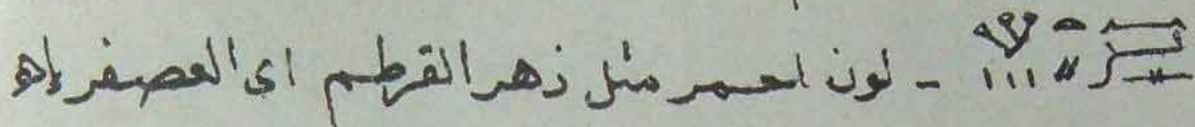 - لون احمر مثل زهر القرطم اى العصفر اه